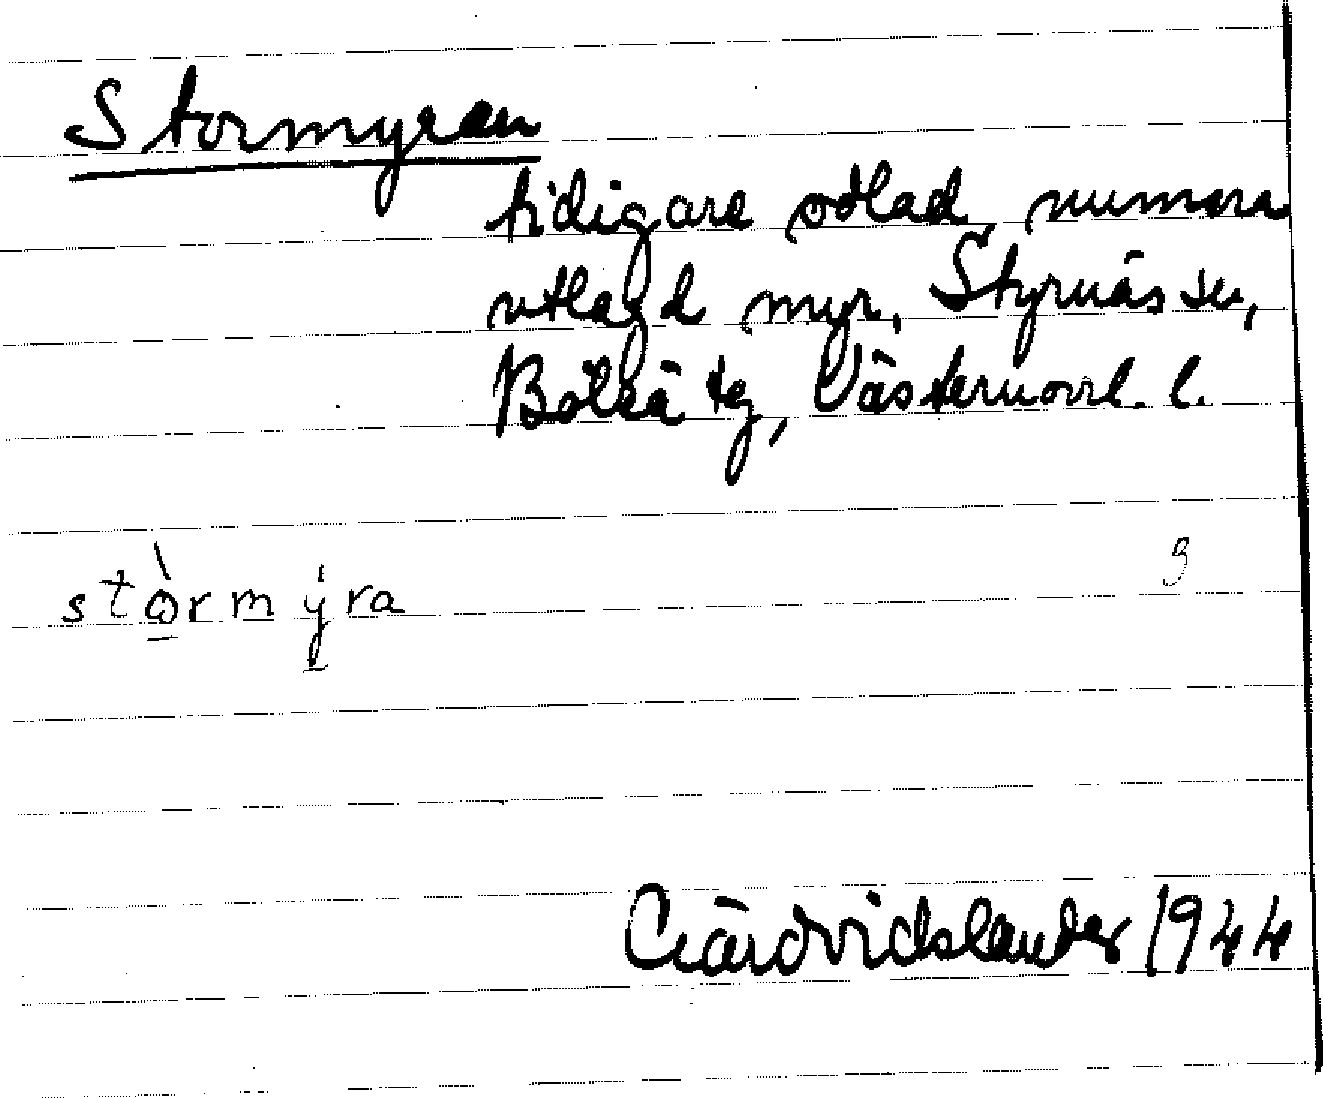 Stormyren
tidigare odlad, numera
utlagd myr, Styrnäs sn,
Böleå tg, Västernorrl. l.
stòrmýra
9
C. Lärdvidslander 1944